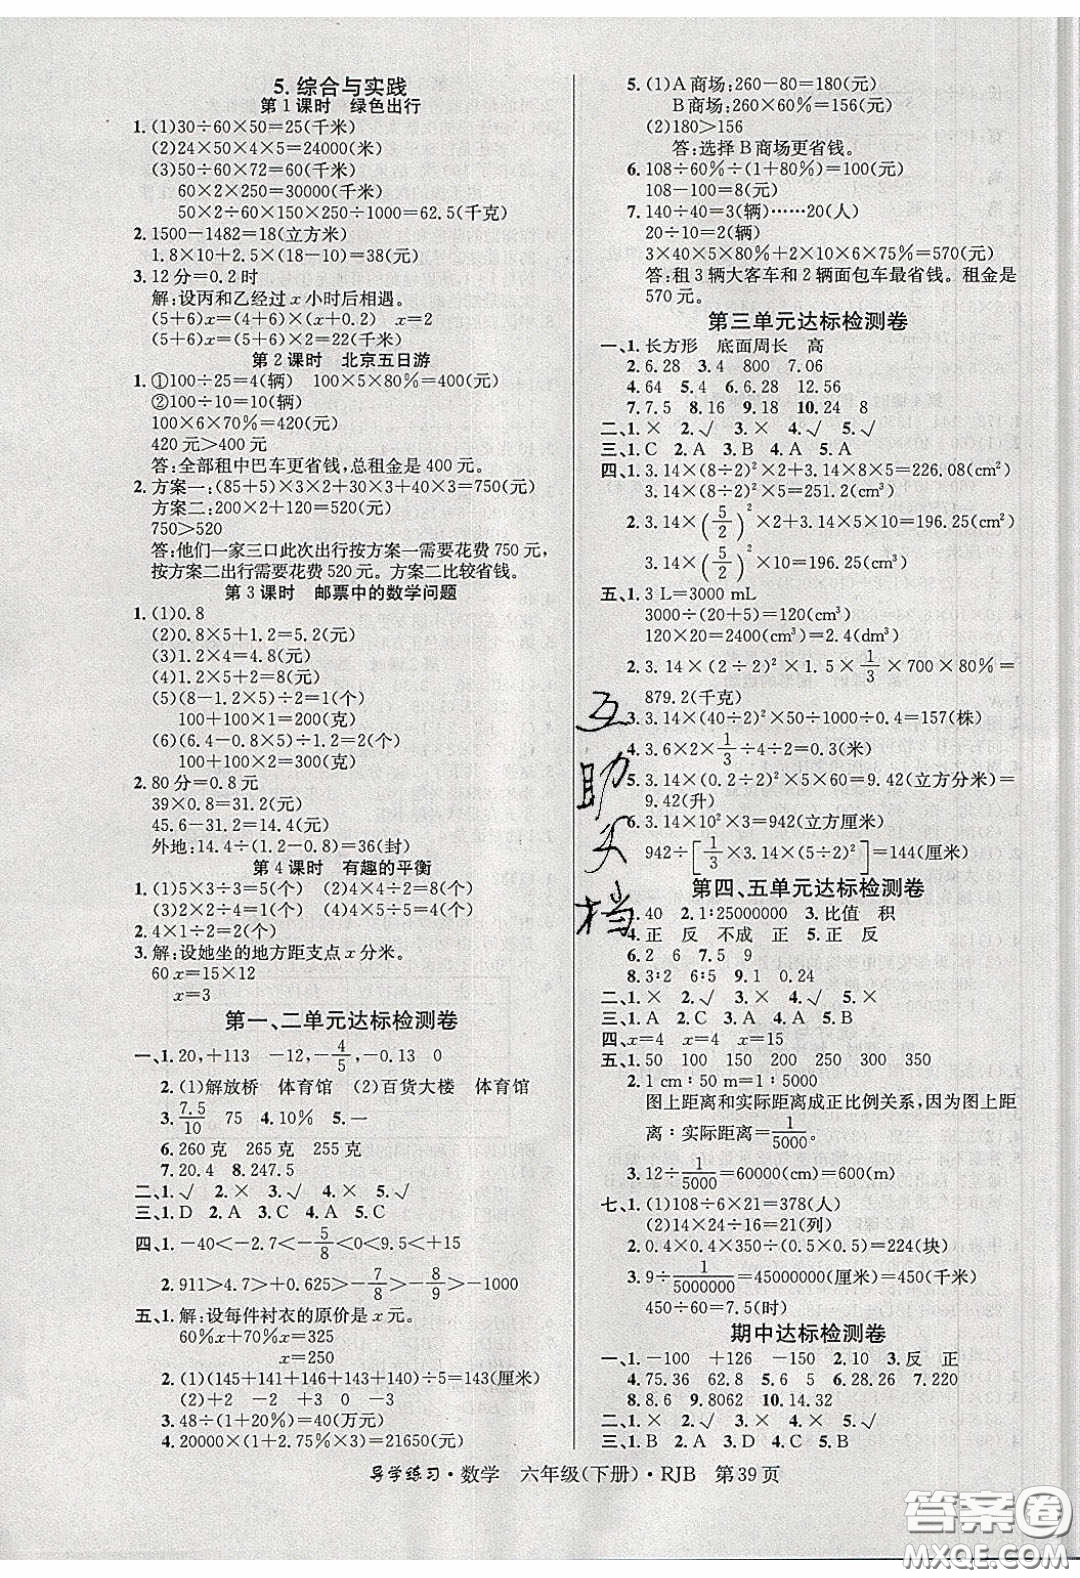 5. 综合与实践
第1课时 绿色出行
1. (1)30÷60×50=25(千米)
(2)24×50×4×5=24000(米)
(3)50÷60×72=60(千米)
60×2×250=30000(千米)
50×2÷60×150×250÷1000=62.5(千克)
2. 1500-1482=18(立方米)
1.8×10+2.5×(18-10)=38(元)
3. 12分=0.2时
解:设丙和乙经过x小时后相遇。
(5+6)x=(4+6)×(x+0.2) x=2
(5+6)x=(5+6)×2=22(千米)
第2课时 北京五日游
1. ①100÷25=4(辆) 100×5×80%=400(元)
②100÷10=10(辆)
100×6×70%=420(元)
420元>400元
答:全部租中巴车更省钱,总租金是400元。
2. 方案一:(85+5)×3×2+30×3×40÷40=750(元)
方案二:200×2+120=520(元)
750>520
答:他们一家三口此次出行按方案一需要花费750元,
按方案二出行需要花费520元。方案二比较省钱。
第3课时 邮票中的数学问题
1. (1)0.8
(2)0.8×5+1.2=5.2(元)
(3)1.2×4=4.8(元)
(4)1.2×5+2=8(元)
(5)(8-1.2×5)÷2=1(个)
100+100×1=200(克)
(6)(6.4-0.8×5)÷1.2=2(个)
100+100×2=300(克)
2. 80分=0.8元
39×0.8=31.2(元)
45.6-31.2=14.4(元)
外地:14.4÷(1.2-0.8)=36(封)
第4课时 有趣的平衡
1. (1)5×3÷3=5(个) (2)4×3÷2=6(个)
(3)2×2÷1=4(个) (4)4×5÷4=5(个)
2. 4×1÷2=2(个)
3. 解:设她坐的地方距支点x分米。
60x=15×12
x=3
第一、二单元达标检测卷
一、1. 20,+113 -12,-4/5,-0.13 0
2. (1)解放桥 体育馆 (2)百货大楼 体育馆
3. 7.5/10 75 4. 10% 5. 一
6. 260克 265克 255克
7. 20.4 8. 247.5
二、1. √ 2. × 3. √ 4. × 5. √
三、1. D 2. A 3. C 4. A 5. C
四、1. -40<-2.7<-5/8<0<9.5<+15
2. 911>4.7>+0.625>-7/8>-8/9>-1000
五、1. 解:设每件衬衣的原价是x元。
60%x+70%x=325
x=250
2. (1)(145+141+146+143+140)÷5=143(厘米)
(2)+2 -2 +3 0 -3
3. 48÷(1+20%)=40(万元)
4. 20000×(1+2.75%×3)=21650(元)
5. (1)A商场:260-80=180(元)
B商场:260×60%=156(元)
(2)180>156
答:选择B商场更省钱。
6. 108÷60%÷(1+80%)=100(元)
108-100=8(元)
7. 140÷40=3(辆)……20(人)
20÷10=2(辆)
3×40×5×80%+2×10×6×75%=570(元)
答:租3辆大客车和2辆面包车最省钱。租金是
570元。
第三单元达标检测卷
一、1. 长方形 底面周长 高
2. 6.28 3. 4 800 7.06
4. 64 5. 4 6. 6.28 12.56
7. 7.5 8. 16 9. 18 10. 24 8
二、1. × 2. √ 3. × 4. √ 5. √
三、1. C 2. A 3. B 4. A 5. A
四、1. 3.14×(8÷2)²×2+3.14×8×5=226.08(cm²)
3.14×(8÷2)²×5=251.2(cm³)
2. 3.14×(5/2)²×2+3.14×5×10=196.25(cm²)
3.14×(5/2)²×10=196.25(cm³)
五、1. 3 L=3000 mL
3000÷(20+5)=120(cm²)
120×20=2400(cm³)=2.4(dm³)
2. 3.14×(2÷2)²×1.5×1/3×700×80%=
879.2(千克)
3. 3.14×(40÷2)²×50÷1000÷0.4=157(株)
4. 3.6×2×1/3÷4÷2=0.3(米)
5. 3.14×(0.2÷2)²×5×60=9.42(立方分米)=
9.42(升)
6. 3.14×10²×3=942(立方厘米)
942÷[1/3×3.14×(5÷2)²]=144(厘米)
第四、五单元达标检测卷
一、1. 40 2. 1∶25000000 3. 比值 积
4. 正 反 不成 正 5. 正 反
6. 2 6 7. 5 9
8. 3∶2 6∶5 9. 1 0.24
二、1. × 2. √ 3. × 4. √ 5. ×
三、1. A 2. C 3. A 4. A 5. B
四、x=4 x=4 x=15
五、1. 50 100 150 200 250 300 350
2. 1 cm∶50 m=1∶5000
图上距离和实际距离成正比例关系,因为图上距
离∶实际距离=1/5000。
3. 12÷1/5000=60000(cm)=600(m)
七、1. (1)108÷6×21=378(人)
(2)14×24÷16=21(列)
2. 0.4×0.4×350÷(0.5×0.5)=224(块)
3. 9÷1/5000000=45000000(厘米)=450(千米)
450÷60=7.5(时)
期中达标检测卷
一、1. -100 +126 -150 2. 10 3. 反 正
4. 75.36 62.8 5. 6 6. 5 28.26 7. 220
8. 8.6 9. 8620 10. 14.32
二、1. √ 2. × 3. × 4. × 5. √
三、1. B 2. A 3. D 4. B 5. A
互助天档
导学练习·数学 六年级(下册)·RJB 第39页
答案圈
MXQE.COM